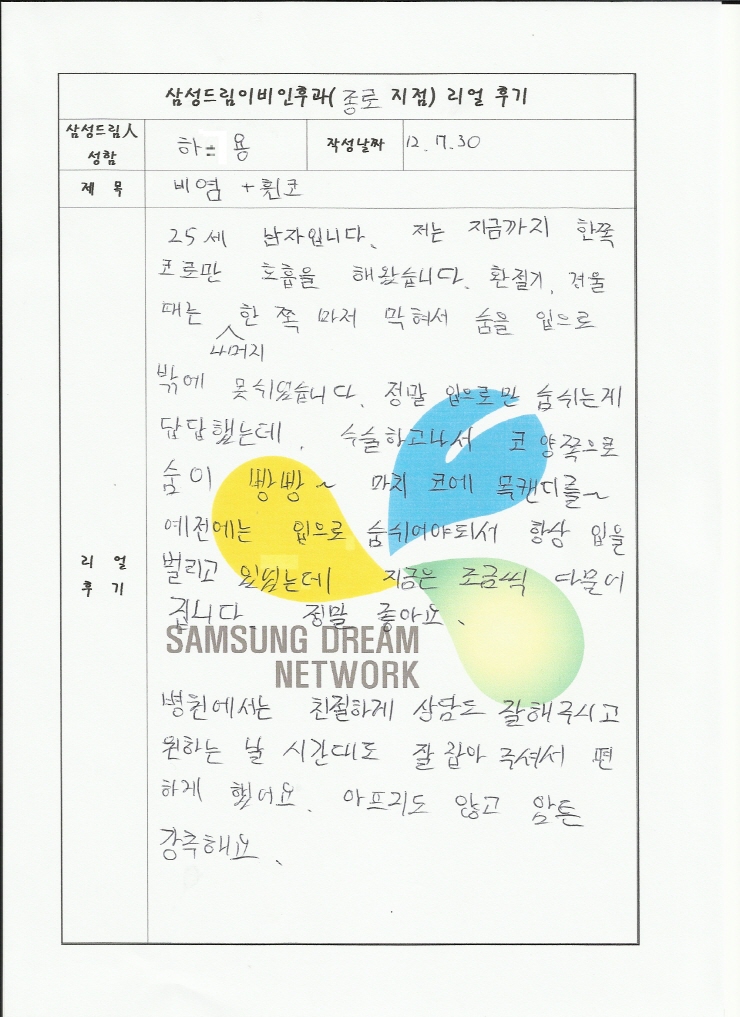 삼성드림이비인후과(종로 지점) 리얼 후기
삼성드림人 성함
하 용
작성날짜
12. 7. 30
제 목
비염 + 휜코
리 얼 후 기
25세 남자입니다. 저는 지금까지 한쪽
코로만 호흡을 해왔습니다. 환절기, 겨울
때는 나머지 한 쪽 마저 막혀서 숨을 입으로
밖에 못쉬었습니다. 정말 입으로만 숨쉬는게
답답했는데, 수술하고나서 코 양쪽으로
숨이 빵빵~ 마치 코에 목캔디를~
예전에는 입으로 숨쉬어야되서 항상 입을
벌리고 있었는데 지금은 조금씩 다물어
집니다. 정말 좋아요.
SAMSUNG DREAM
NETWORK
병원에서는 친절하게 상담도 잘해주시고
원하는 날 시간대도 잘 잡아 주셔서 편
하게 했어요. 아프지도 않고 암튼
강추해요.